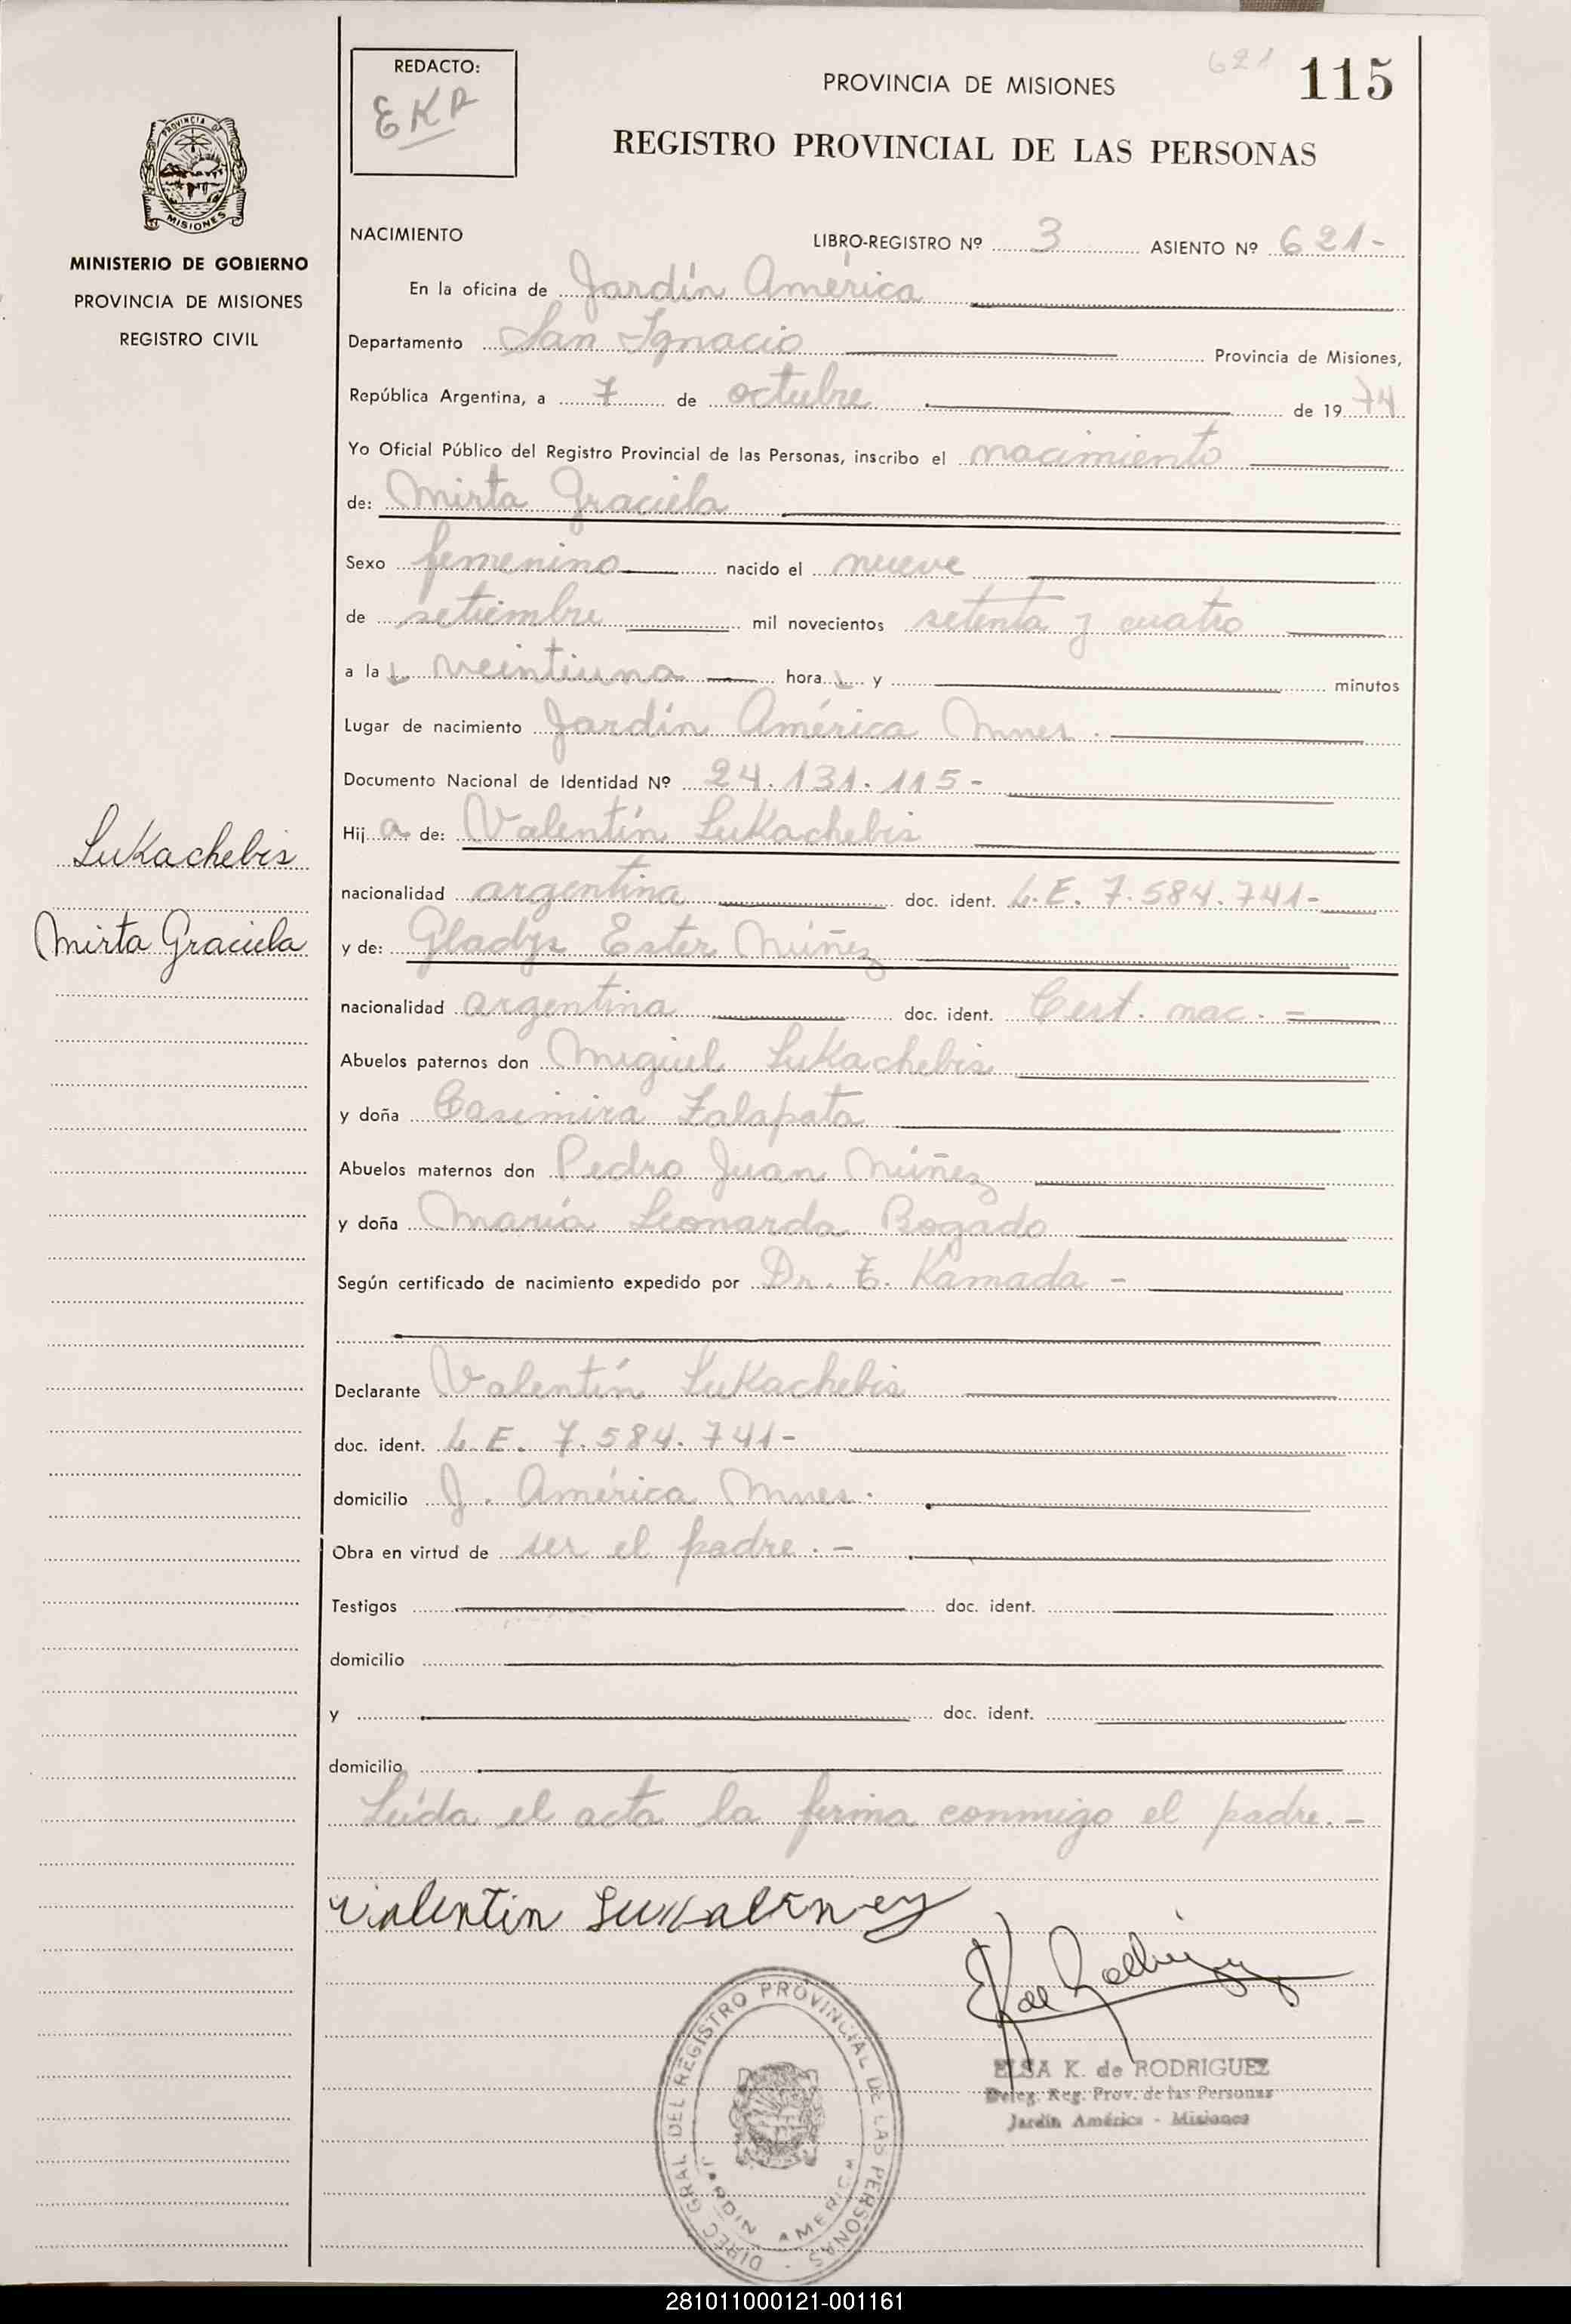 621 115
REDACTO:
EKR
PROVINCIA DE MISIONES
REGISTRO PROVINCIAL DE LAS PERSONAS
PROVINCIA DE
MISIONES
MINISTERIO DE GOBIERNO
PROVINCIA DE MISIONES
REGISTRO CIVIL
NACIMIENTO LIBRO-REGISTRO Nº 3 ASIENTO Nº 621-
En la oficina de Jardín América
Departamento San Ignacio Provincia de Misiones,
República Argentina, a 7 de octubre de 1974
Yo Oficial Público del Registro Provincial de las Personas, inscribo el nacimiento
de: Mirta Graciela
Sexo femenino nacido el nueve
de setiembre mil novecientos setenta y cuatro
a la s veintiuna hora s y minutos
Lugar de nacimiento Jardín América Mnes.
Documento Nacional de Identidad Nº 24.131.115-
Hija de: Valentín Lukachebis
Lukachebis
nacionalidad argentina doc. ident. L.E. 7.584.741-
Mirta Graciela
y de: Gladys Ester Núñez
nacionalidad argentina doc. ident. Cert. nac. =
Abuelos paternos don Miguel Lukachebis
y doña Casimira Zalapata
Abuelos maternos don Pedro Juan Núñez
y doña María Leonarda Bogado
Según certificado de nacimiento expedido por Dr. Z. Kamada -
Declarante Valentín Lukachebis
doc. ident. L.E. 7.584.741-
domicilio J. América Mnes.
Obra en virtud de ser el padre. -
Testigos doc. ident.
domicilio
y doc. ident.
domicilio
Leída el acta la firma conmigo el padre. -
Valentin
DIREC GRAL DEL REGISTRO PROVINCIAL DE LAS PERSONAS -
JARDIN AMERICA
ELSA K. de RODRIGUEZ
Deleg. Reg. Prov. de las Personas
Jardín América - Misiones
281011000121-001161